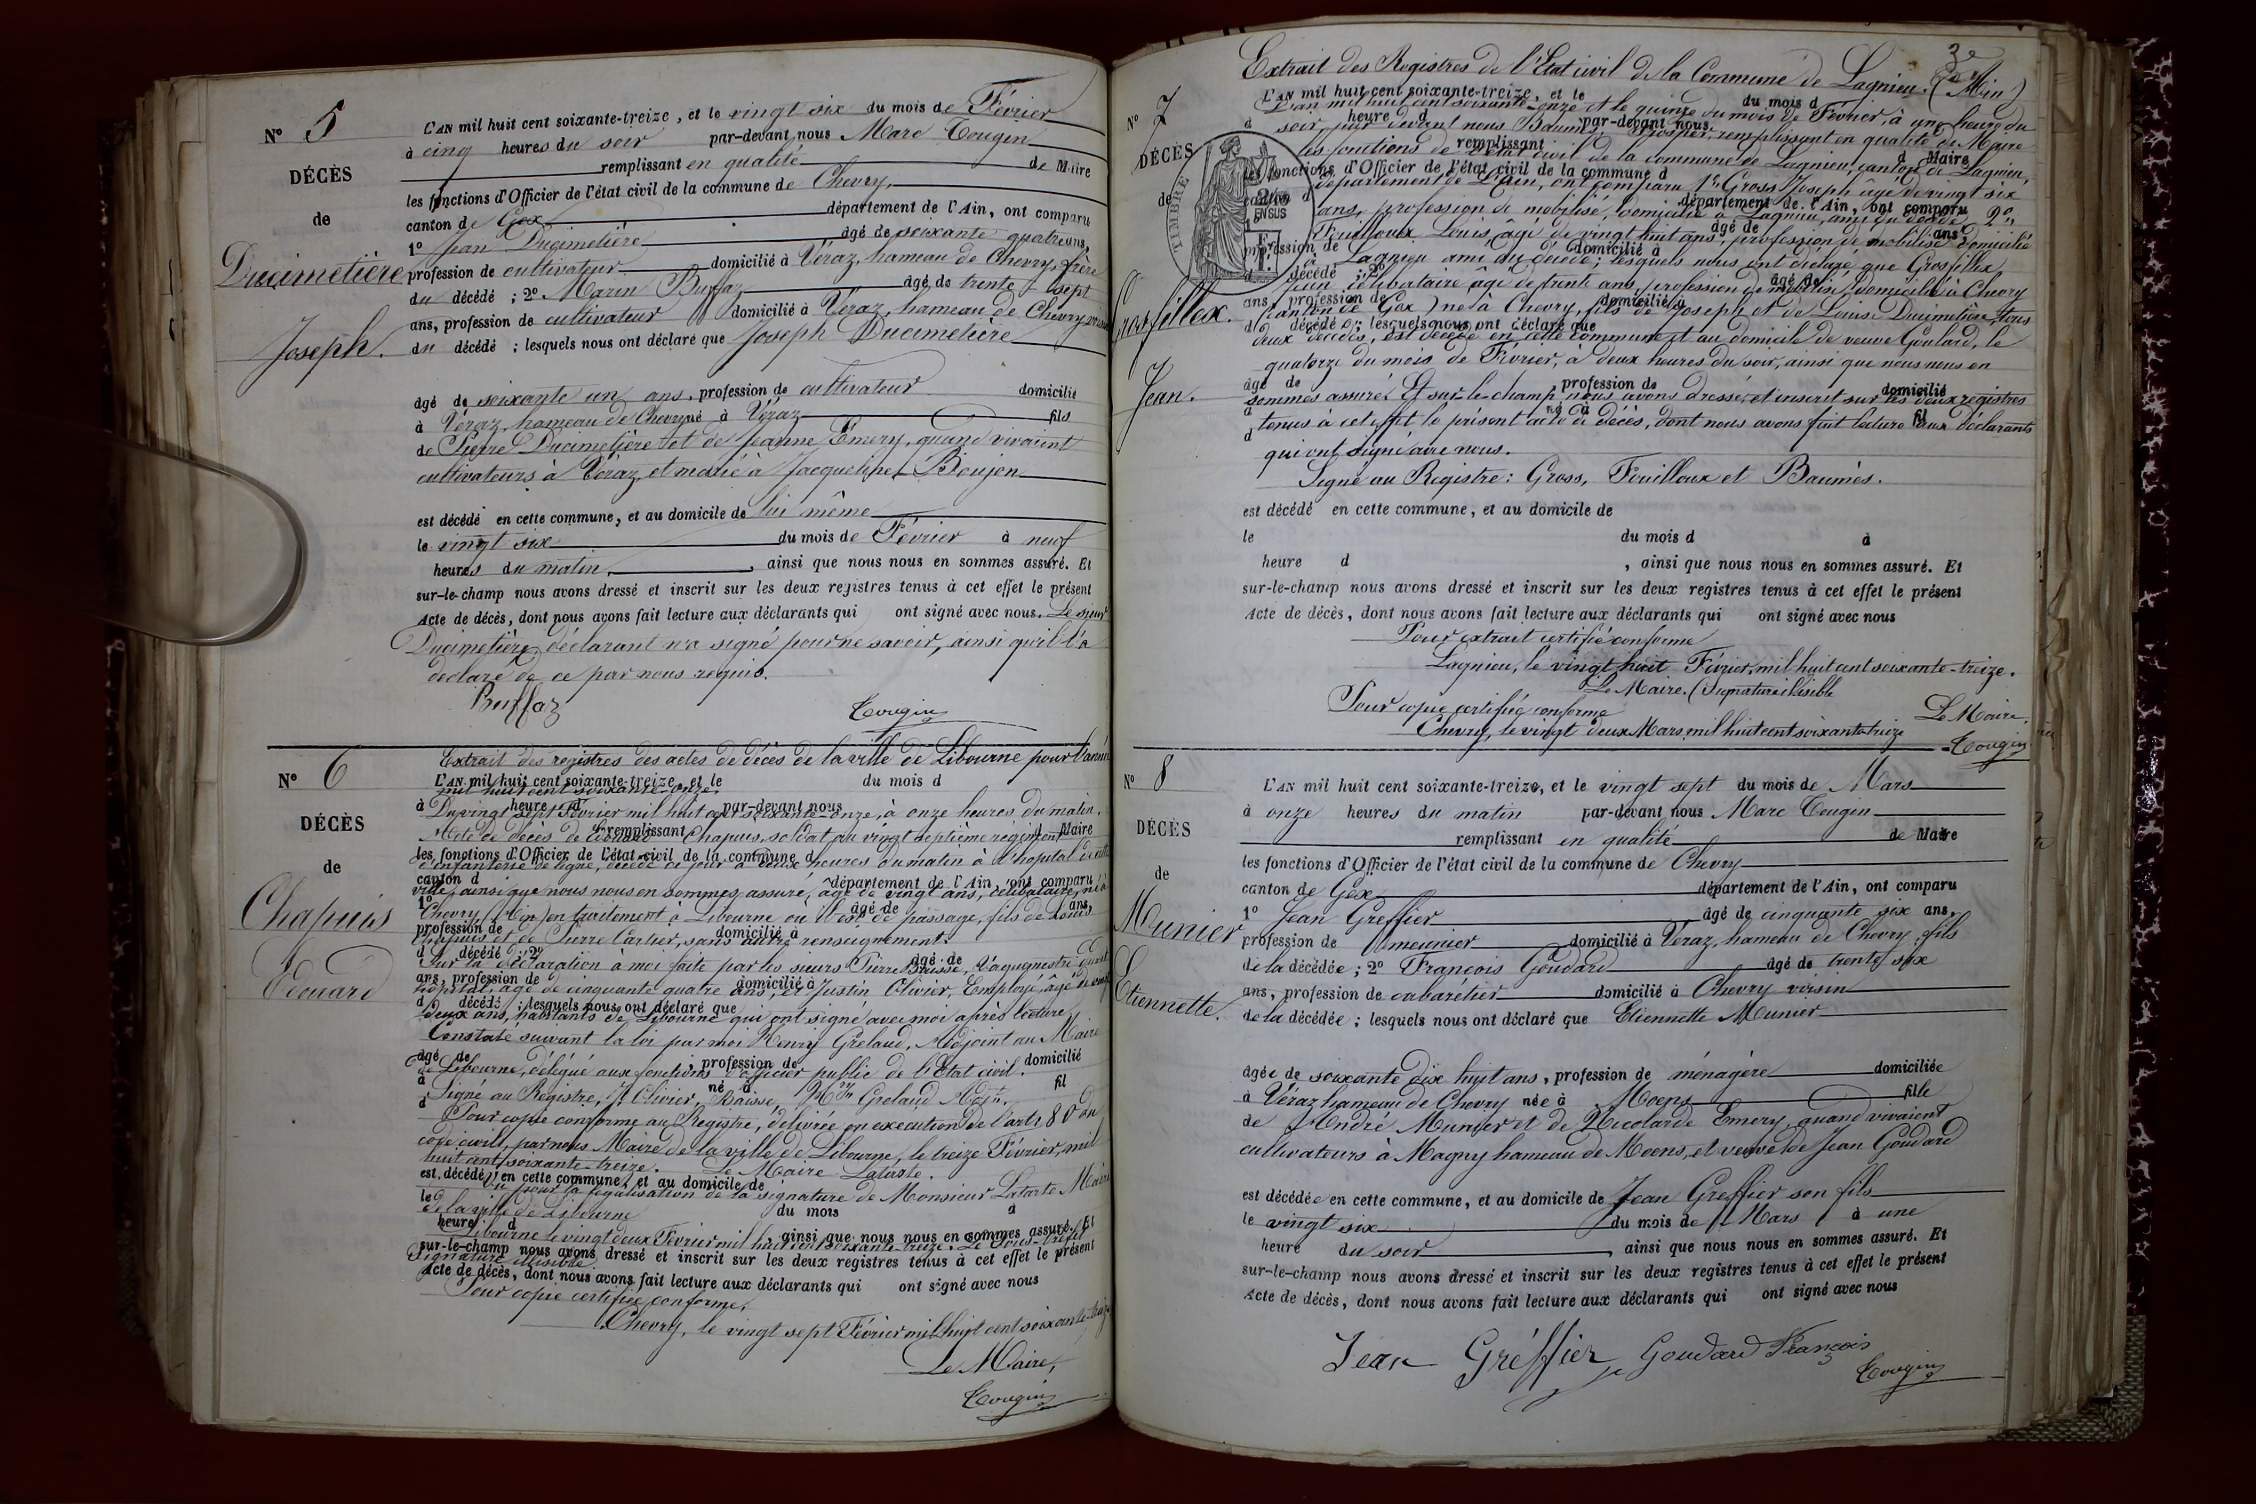 N° 5
DÉCÈS
de
Ducimetière
Joseph.
L'AN mil huit cent soixante-treize, et le vingt six du mois de Février
à cinq heures du soir par-devant nous Marc Tougin
remplissant en qualité de Maire
les fonctions d'Officier de l'état civil de la commune de Chevry,
canton de Gex département de l'Ain, ont comparu
1° Jean Ducimetière âgé de soixante quatre ans,
profession de cultivateur domicilié à Véraz, hameau de Chevry, frère
du décédé ; 2° Marin Buffaz âgé de trente sept
ans, profession de cultivateur domicilié à Véraz, hameau de Chevry, voisin
du décédé ; lesquels nous ont déclaré que Joseph Ducimetière
âgé de soixante un ans, profession de cultivateur domicilié
à Véraz, hameau de Chevry né à Véraz fils
de Pierre Ducimetière et de Jeanne Emery, quand vivaient
cultivateurs à Véraz, et marié à Jacqueline Boujon
est décédé en cette commune, et au domicile de lui même
le vingt six du mois de Février à neuf
heures du matin, ainsi que nous nous en sommes assuré. Et
sur-le-champ nous avons dressé et inscrit sur les deux registres tenus à cet effet le présent
Acte de décès, dont nous avons fait lecture aux déclarants qui ont signé avec nous. Le sieur
Ducimetière, déclarant n'a signé pour ne savoir, ainsi qu'il l'a
déclaré de ce par nous requis.
Buffaz
Tougin
N° 6
DÉCÈS
de
Chapuis
Edouard
Extrait des registres des actes de décès de la ville de Libourne pour l'année
L'AN mil huit cent soixante-treize, et le du mois d
mil huit cent soixante-onze.
à heure d par-devant nous
Du vingt sept Février mil huit cent soixante-onze, à onze heures du matin.
remplissant d Maire
Acte de décès de Edouard Chapuis, soldat au vingt septième régiment
les fonctions d'Officier de l'état civil de la commune d
d'infanterie de ligne, décédé ce jour à deux heures du matin à l'hopital de cette
canton d département de l'Ain, ont comparu
ville, ainsi que nous nous en sommes assuré, âgé de vingt ans, célibataire, né à
1° âgé de ans,
Chevry (Ain) en traitement à Libourne où il est de passage, fils de Louis
profession de domicilié à
Chapuis et de Pierre Cartier, sans autre renseignement.
d décédé ; 2° âgé de
Sur la déclaration à moi faite par les sieurs Pierre Baisse,
ans, profession de domicilié à
hôpital, âgé de cinquante quatre ans, et Justin Olivier, Employé, âgé de
d décédé ; lesquels nous ont déclaré que
deux ans, habitants de Libourne qui ont signé avec moi après lecture
Constaté suivant la loi par moi Henry Grelaud, Adjoint au Maire
âgé de profession de domicilié
de Libourne, délégué aux fonctions d'officier public de l'Etat civil.
à né à fil
Signé au Registre, J. Olivier, Baisse, Grelaud Adjt.
d
Pour copie conforme au Registre, délivrée en exécution de l'arte 80 du
code civil, par nous Maire de la ville de Libourne, le treize Février, mil
huit cent soixante-treize. Le Maire Lataste.
est décédé en cette commune, et au domicile de
Vu pour la légalisation de la signature de Monsieur Lataste Maire
le du mois d à
de la ville de Libourne
heure d , ainsi que nous nous en sommes assuré. Et
Libourne le vingt deux Février mil huit cent soixante-treize. Le Sous-Préfet
sur-le-champ nous avons dressé et inscrit sur les deux registres tenus à cet effet le présent
Signature illisible.
Acte de décès, dont nous avons fait lecture aux déclarants qui ont signé avec nous
Pour copie certifiée conforme,
Chevry, le vingt sept Février mil huit cent soixante-treize
Le Maire,
Tougin
N° 7
DÉCÈS
de
Grosfillex.
Jean.
TIMBRE
2/10
EN SUS
Extrait des Registres de l'Etat civil de la Commune de Lagnieu. (Ain)
L'AN mil huit cent soixante-treize, et le du mois d
L'an mil huit cent soixante-onze et le quinze du mois de Février, à une heure du
à heure d par-devant nous
soir, par devant nous Baumès Prosper, remplissant en qualité de Maire
remplissant d Maire
les fonctions de l'état civil de la commune de Lagnieu, canton de Lagnieu,
les fonctions d'Officier de l'état civil de la commune d
département de l'Ain, ont comparu 1° Gross Joseph âgé de vingt six
canton d département de l'Ain, ont comparu
ans, profession de mobilisé, domicilié à Lagnieu, ami du décédé, 2°
âgé de ans,
Fouilloux Louis, âgé de vingt huit ans, profession de mobilisé domicilié
profession de domicilié à
à Lagnieu ami du décédé; lesquels nous ont déclaré que Grosfillex
d décédé ; 2° âgé de
Jean célibataire âgé de trente ans, profession de mobilisé, domicilié à Chevry
ans, profession de domicilié à
(canton de Gex) né à Chevry, fils de Joseph et de Louise Ducimetière, tous
d décédé ; lesquels nous ont déclaré que
deux décédés, est décédé en cette commune et au domicile de veuve Goulard, le
quatorze du mois de Février, à deux heures du soir, ainsi que nous nous en
âgé de profession de domicilié
sommes assuré. Et sur-le-champ nous avons dressé et inscrit sur les deux registres
à né à fil
tenus à cet effet le présent acte de décès, dont nous avons fait lecture aux déclarants
d
qui ont signé avec nous.
Signé au Registre : Gross, Fouilloux et Baumès.
est décédé en cette commune, et au domicile de
le du mois d à
heure d , ainsi que nous nous en sommes assuré. Et
sur-le-champ nous avons dressé et inscrit sur les deux registres tenus à cet effet le présent
Acte de décès, dont nous avons fait lecture aux déclarants qui ont signé avec nous
Pour extrait certifié conforme
Lagnieu, le vingt huit Février, mil huit cent soixante-treize.
Le Maire. (Signature illisible
Pour copie certifiée conforme
Chevry, le vingt deux Mars, mil huit cent soixante-treize
Le Maire.
Tougin
N° 8
DÉCÈS
de
Munier
Etiennette.
L'AN mil huit cent soixante-treize, et le vingt sept du mois de Mars
à onze heures du matin par-devant nous Marc Tougin
remplissant en qualité de Maire
les fonctions d'Officier de l'état civil de la commune de Chevry
canton de Gex département de l'Ain, ont comparu
1° Jean Greffier âgé de cinquante six ans,
profession de meunier domicilié à Veraz, hameau de Chevry, fils
de la décédée ; 2° François Goudard âgé de trente six
ans, profession de cabarétier domicilié à Chevry voisin
de la décédée ; lesquels nous ont déclaré que Etiennette Munier
âgée de soixante dix huit ans, profession de ménagère domiciliée
à Véraz hameau de Chevry née à Moens fille
de André Munier et de Nicolarde Emery, quand vivaient
cultivateurs à Magny hameau de Moens, et veuve de Jean Goudard
est décédée en cette commune, et au domicile de Jean Greffier son fils
le vingt six du mois de Mars à une
heure du soir , ainsi que nous nous en sommes assuré. Et
sur-le-champ nous avons dressé et inscrit sur les deux registres tenus à cet effet le présent
Acte de décès, dont nous avons fait lecture aux déclarants qui ont signé avec nous
Jean Gréffier Goudard François
Tougin